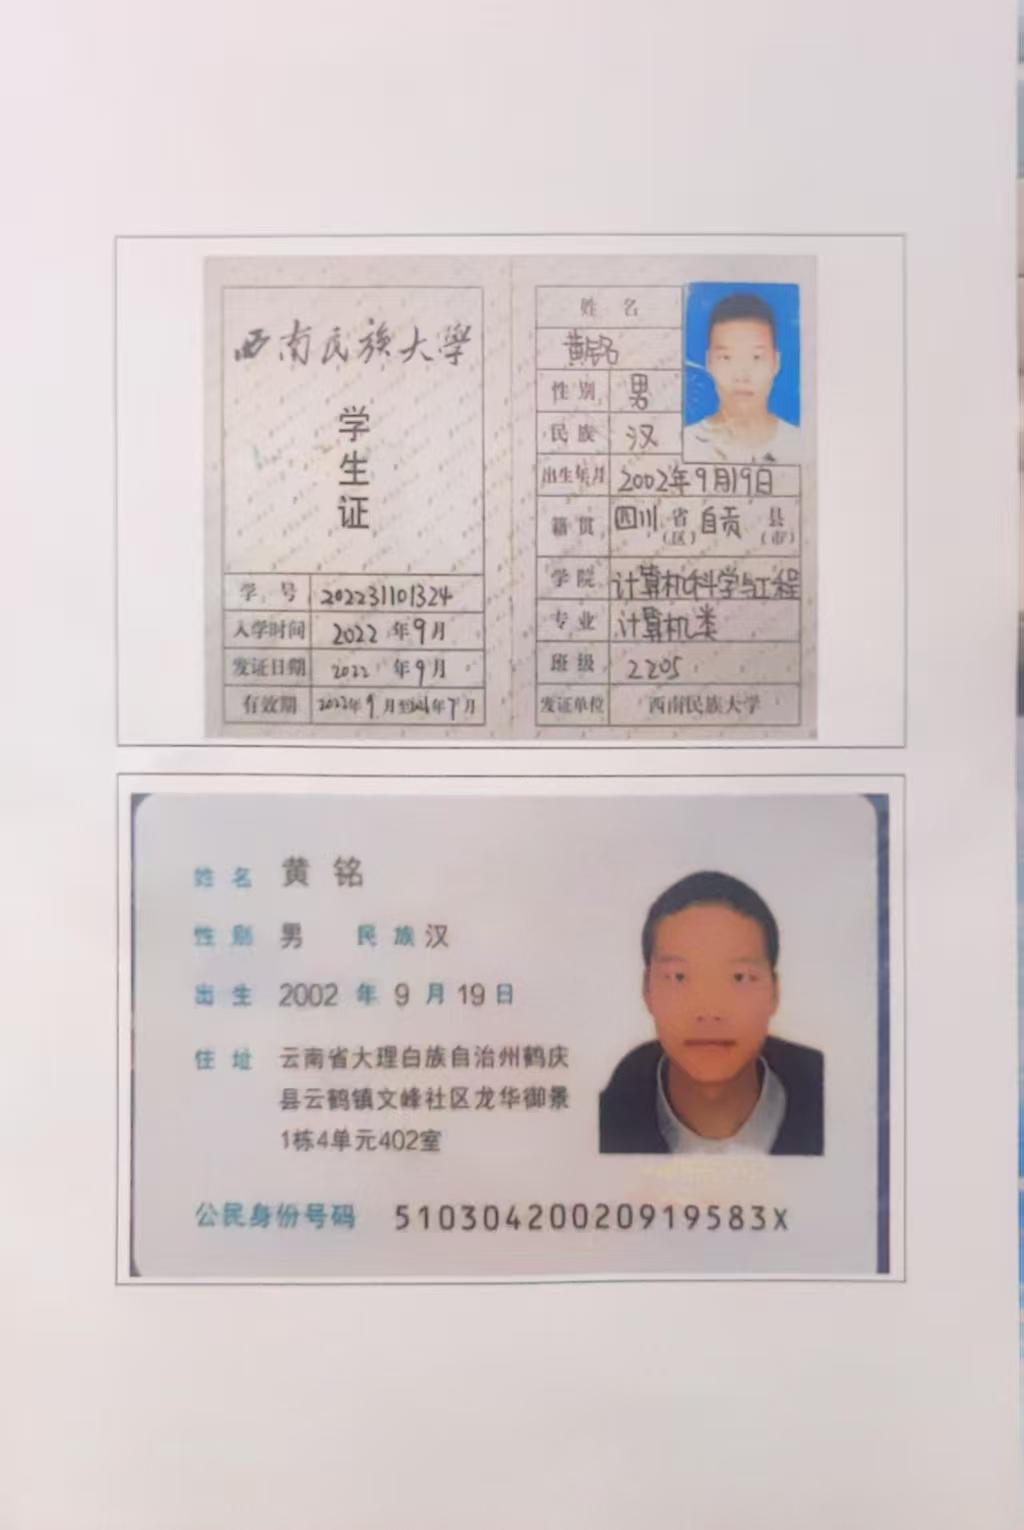 西南民族大学
学
生
证
学 号 202231101324
入学时间 2022 年 9 月
发证日期 2022 年 9 月
有效期 2022年 9 月至 年 7 月
姓 名
黄铭
性 别 男
民 族 汉
出生年月 2002年9月19日
籍 贯 四川 省(区) 自贡 县(市)
学 院 计算机科学与工程
专 业 计算机类
班 级 2205
发证单位 西南民族大学
姓 名 黄 铭
性 别 男 民 族 汉
出 生 2002 年 9 月 19 日
住 址 云南省大理白族自治州鹤庆
县云鹤镇文峰社区龙华御景
1栋4单元402室
公民身份号码 51030420020919583X